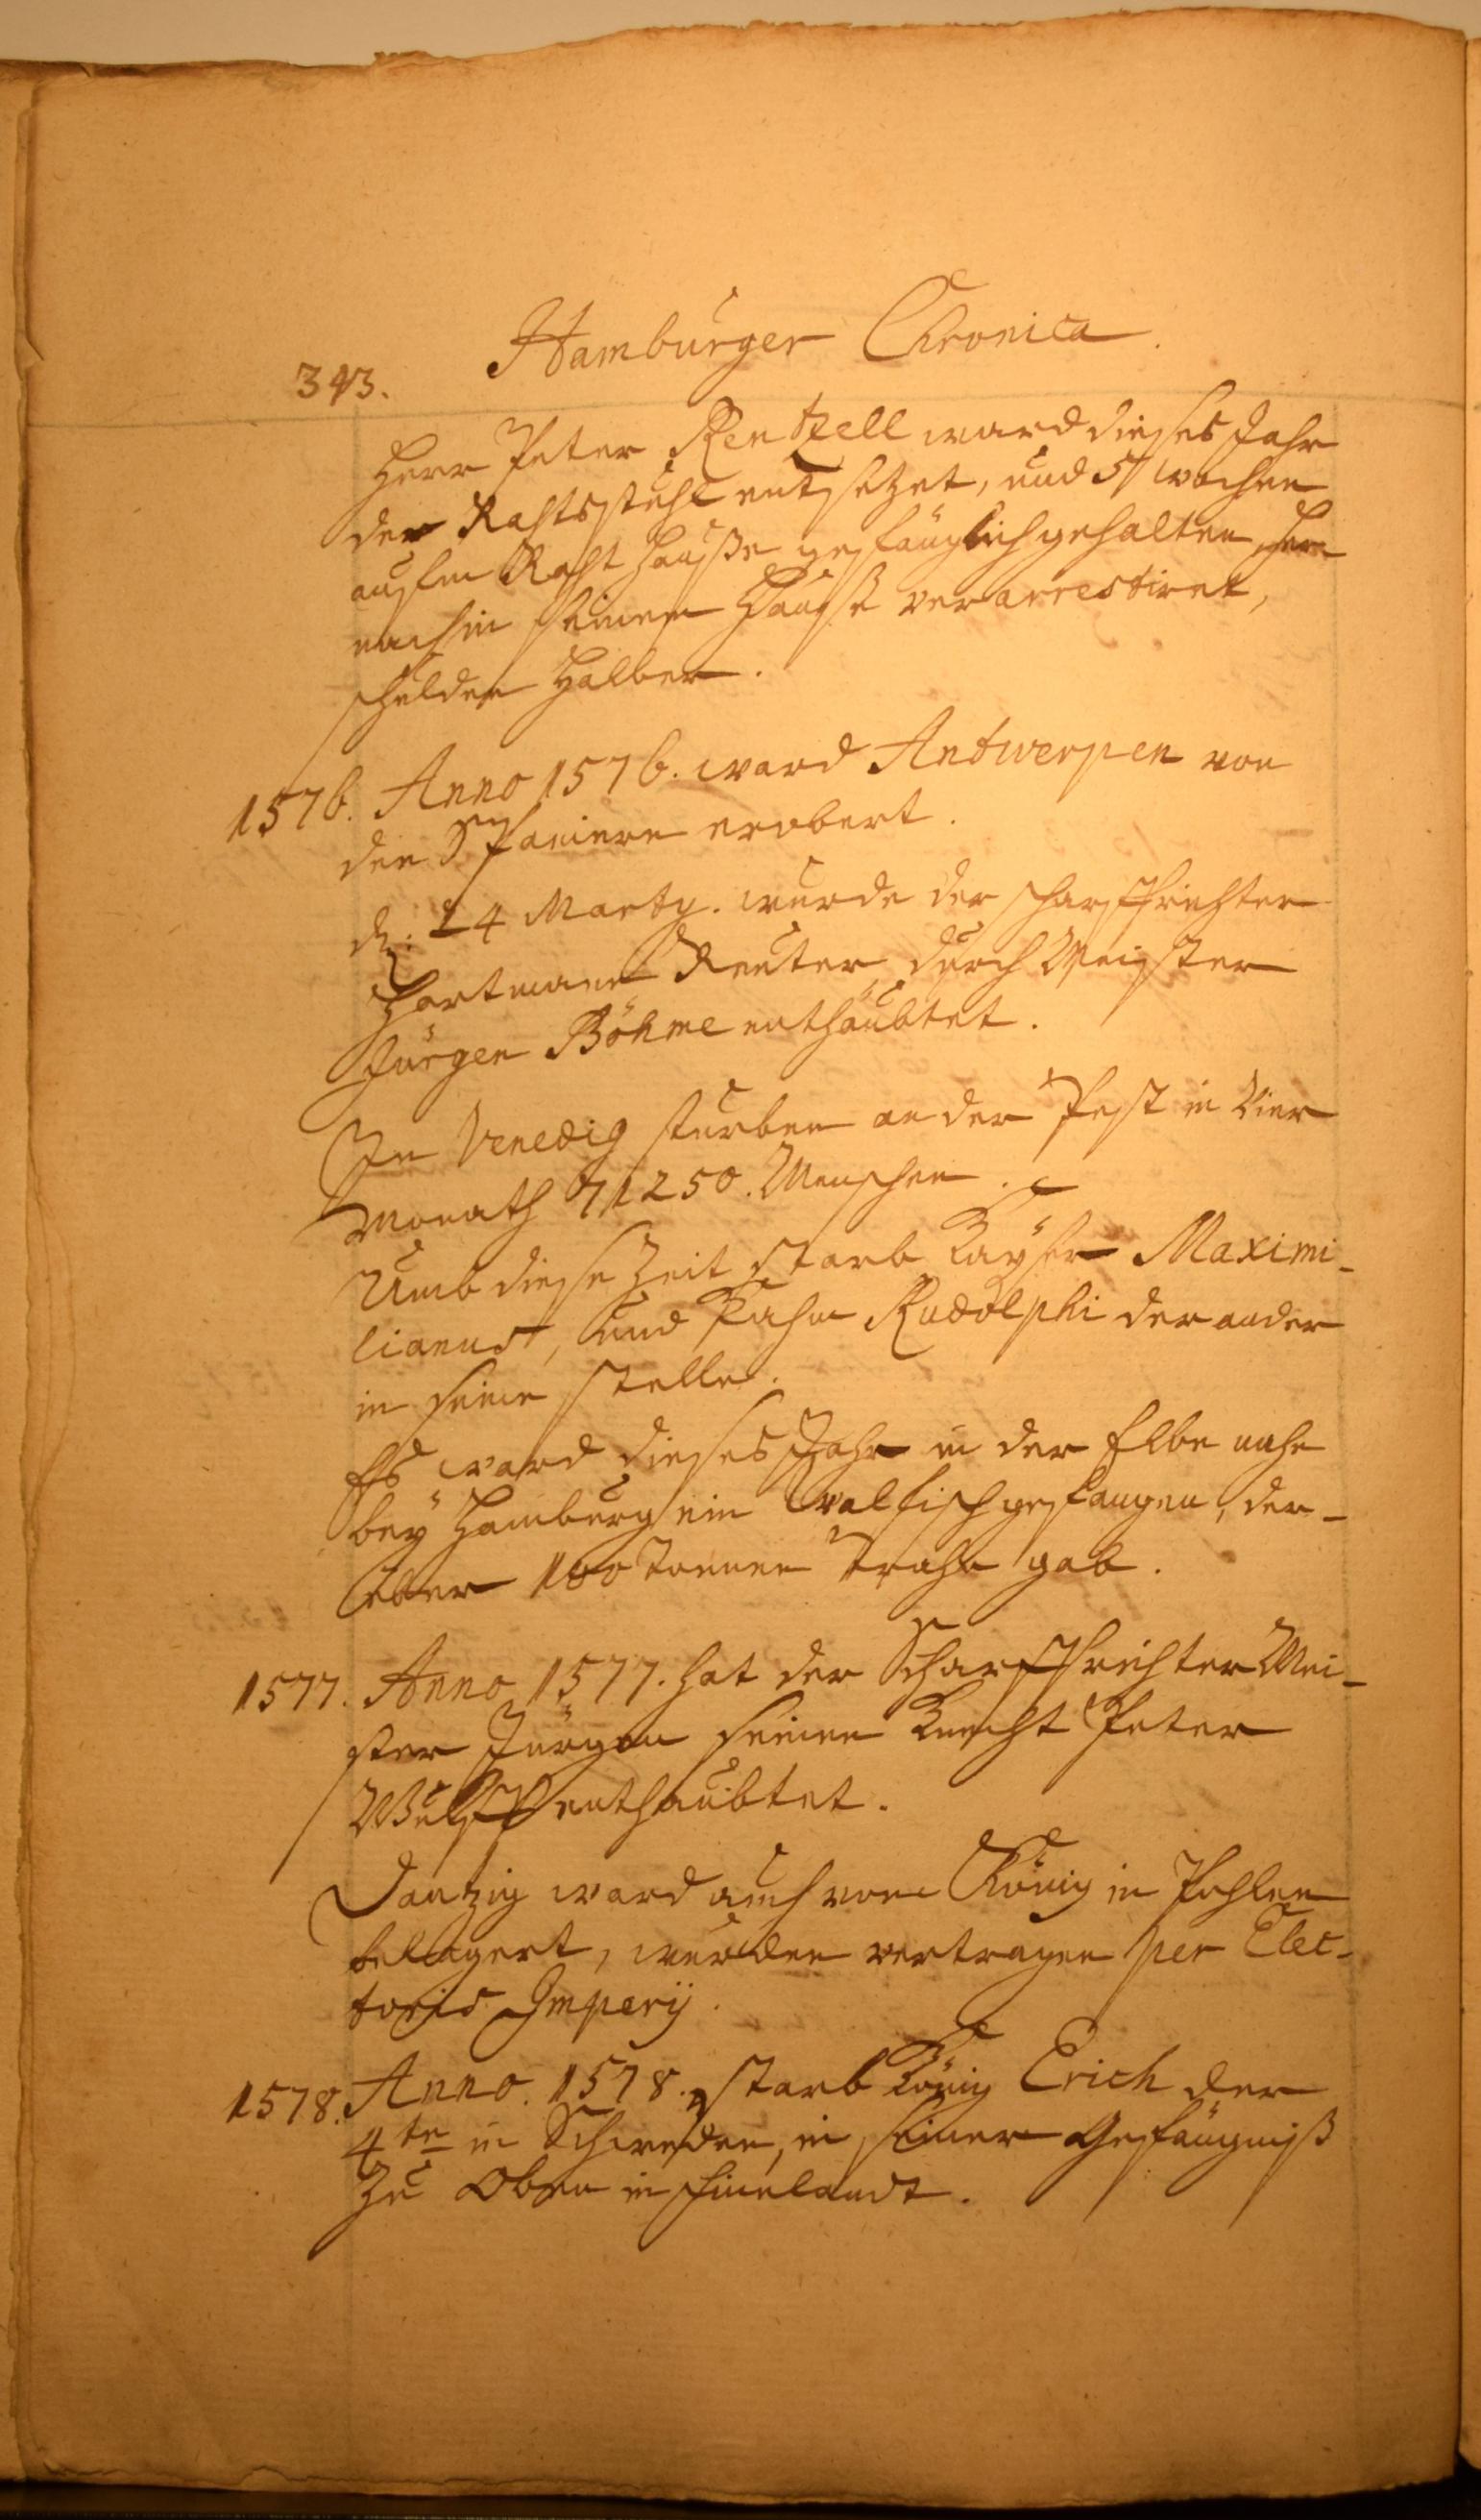 Hamburger Chronica.
343.
Herr Peter Rentzell ward dieses Jahr
der Rahtsstuhl entsetzet, und 51 wochen
aufm Raht Hauße gefänglich gehalten, her
nach in seinem Hauße verarrestiret,
schulden halber.
1576. Anno 1576. ward Antwerpen von
den Spaniern erobert.
d. 24 Marty. wurde der scharffrichter
Hartmann Reuter durch Meister
Jürgen Böhme enthäubtet.
In Venedig sturben an der Pest in Vier
Monath 71250. Menschen.
Umb diese Zeit starb Kayser Maximi-
lianus, und kahm Rudolphi der ander
in seine stelle.
Es ward dieses Jahr in der Elbe nahe
bey Hamburg ein Walfisch gefangen, der
über 100 Tonnen Trahn gab.
1577. Anno 1577. hat der Scharffrichter Mei-
ster Jürgen seinen Knecht Peter
Wulff enthaubtet.
Dantzig ward auch vom König in Pohlen
belagert, wurden vertragen per Elec-
toris Imperij.
1578. Anno. 1578. starb König Erich der
4te in Schweden, in seiner Gefängniß
Zu Oben in Finelandt.